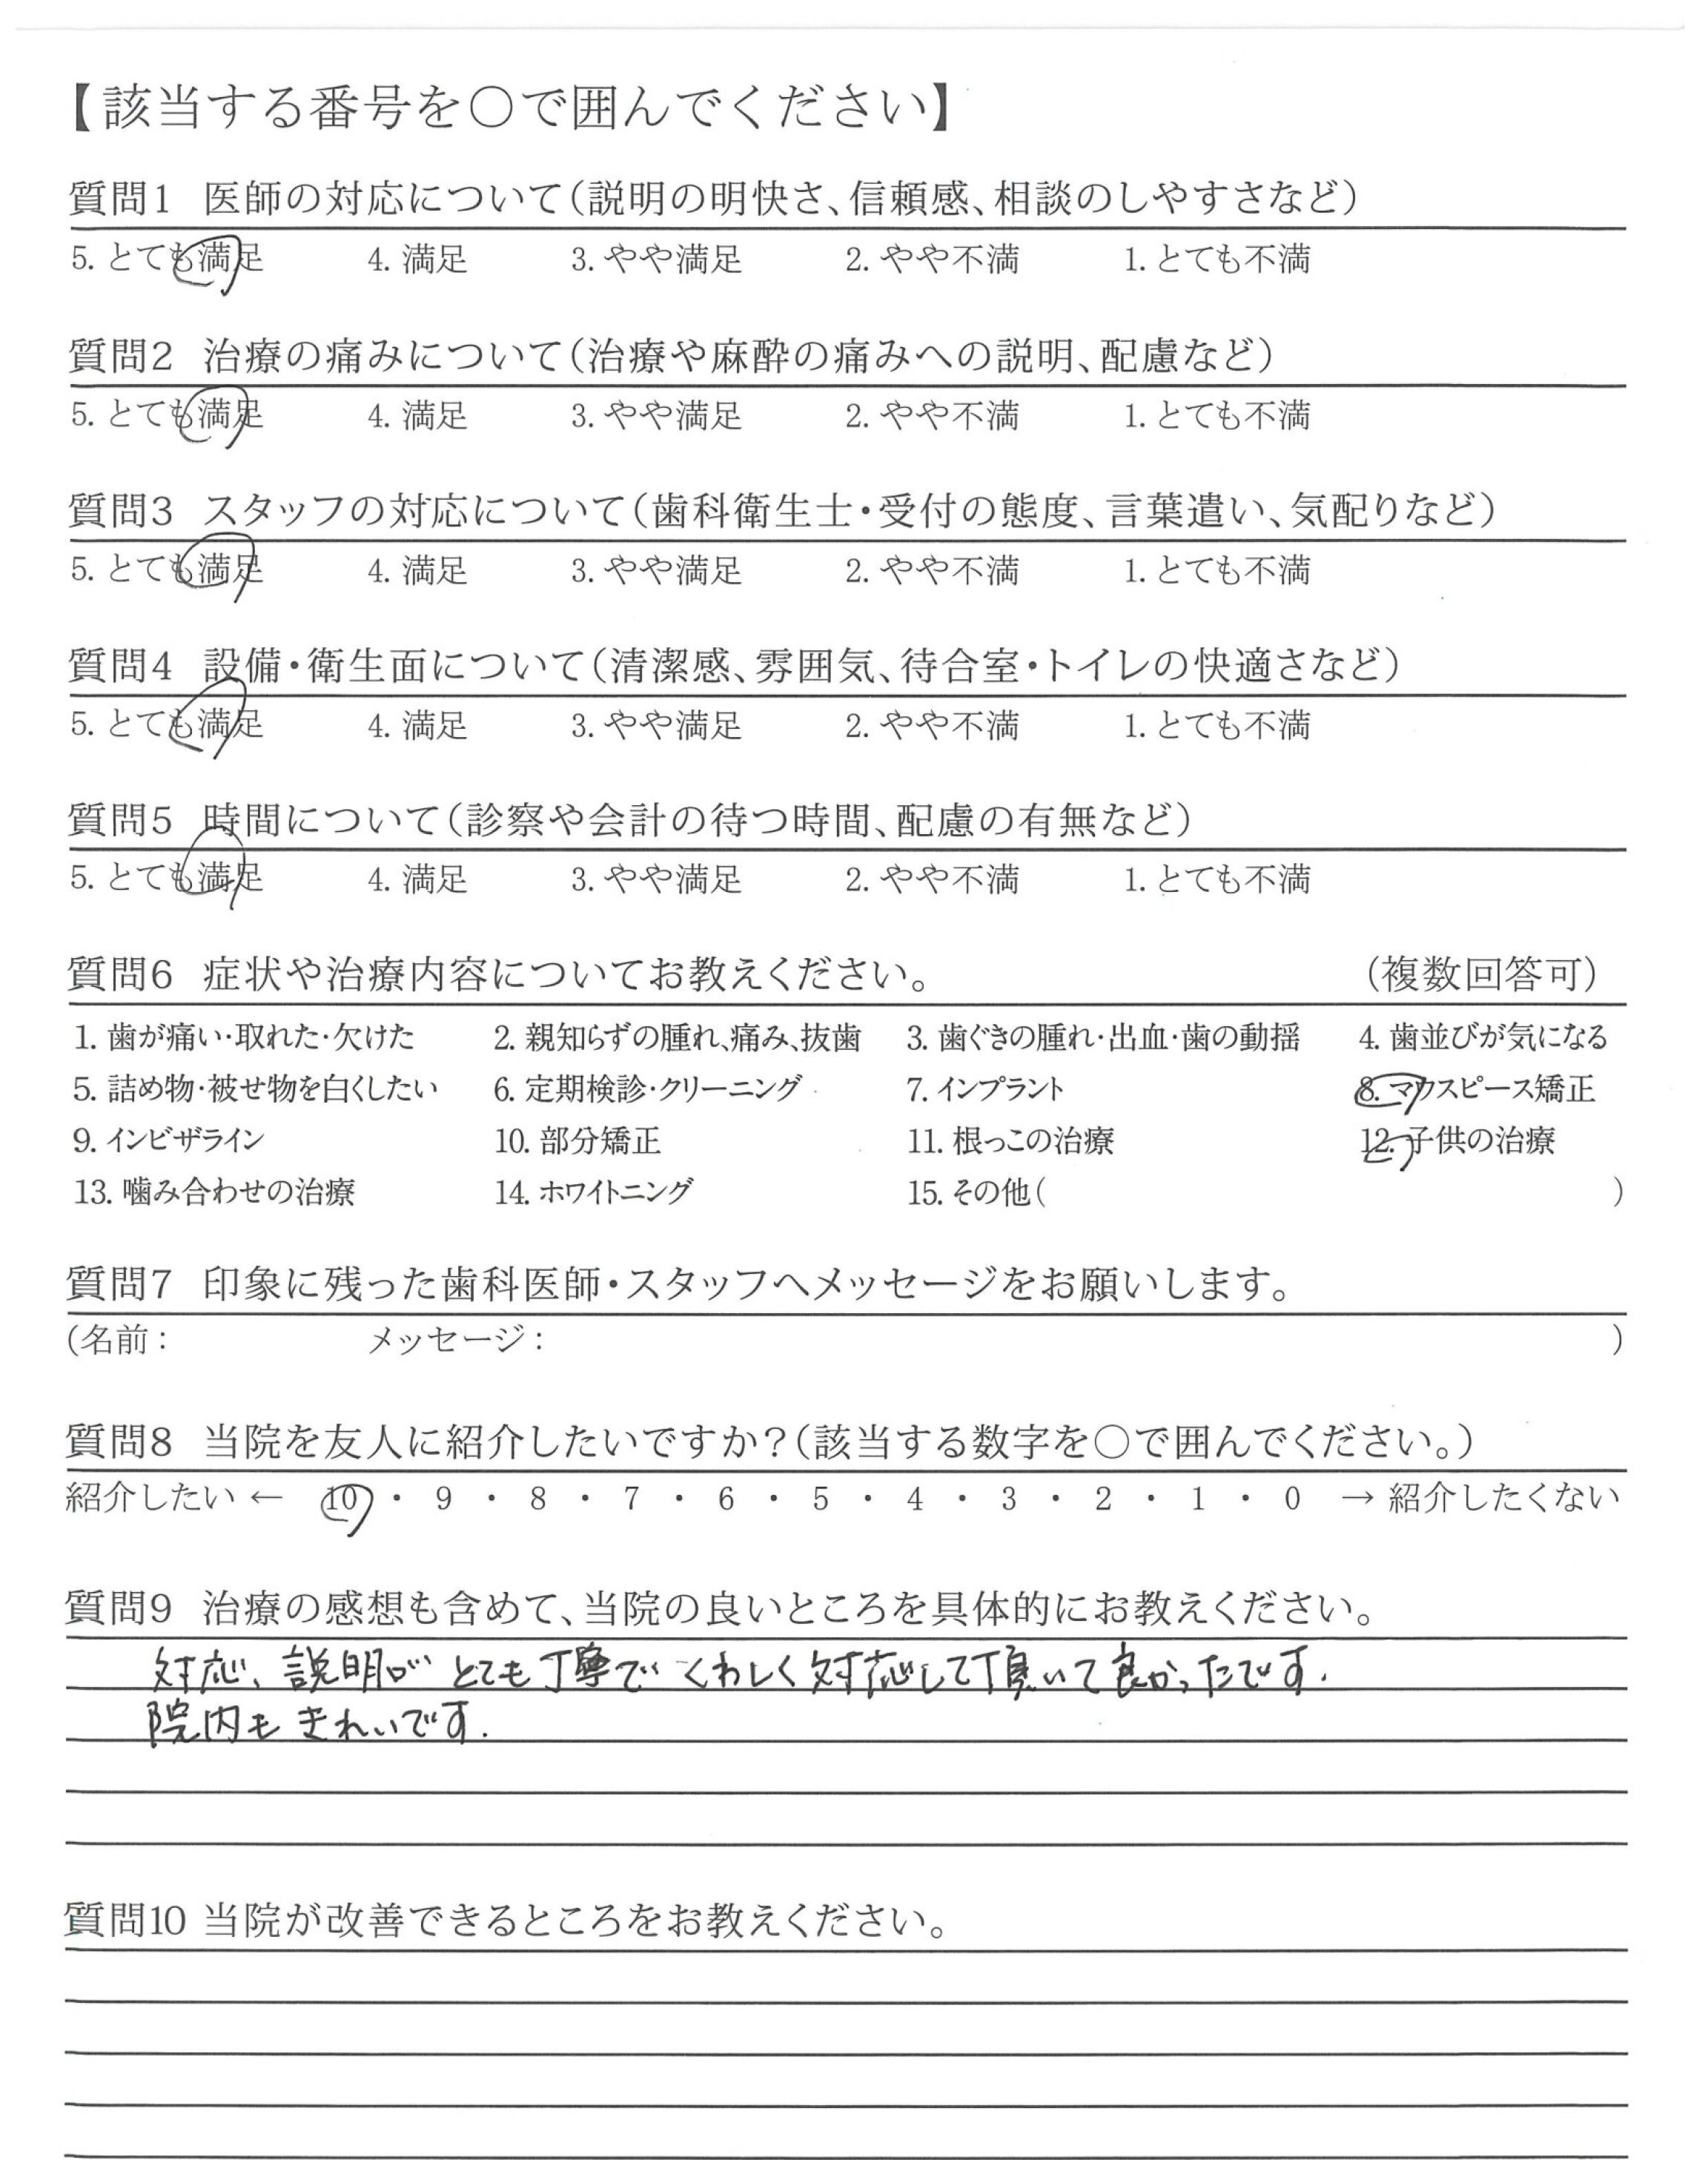 【該当する番号を○で囲んでください】
質問1 医師の対応について(説明の明快さ、信頼感、相談のしやすさなど)
5. とても満足 4. 満足 3. やや満足 2. やや不満 1. とても不満
質問2 治療の痛みについて(治療や麻酔の痛みへの説明、配慮など)
5. とても満足 4. 満足 3. やや満足 2. やや不満 1. とても不満
質問3 スタッフの対応について(歯科衛生士・受付の態度、言葉遣い、気配りなど)
5. とても満足 4. 満足 3. やや満足 2. やや不満 1. とても不満
質問4 設備・衛生面について(清潔感、雰囲気、待合室・トイレの快適さなど)
5. とても満足 4. 満足 3. やや満足 2. やや不満 1. とても不満
質問5 時間について(診察や会計の待つ時間、配慮の有無など)
5. とても満足 4. 満足 3. やや満足 2. やや不満 1. とても不満
質問6 症状や治療内容についてお教えください。 (複数回答可)
1. 歯が痛い・取れた・欠けた 2. 親知らずの腫れ、痛み、抜歯 3. 歯ぐきの腫れ・出血・歯の動揺 4. 歯並びが気になる
5. 詰め物・被せ物を白くしたい 6. 定期検診・クリーニング 7. インプラント 8. マウスピース矯正
9. インビザライン 10. 部分矯正 11. 根っこの治療 12. 子供の治療
13. 噛み合わせの治療 14. ホワイトニング 15. その他( )
質問7 印象に残った歯科医師・スタッフへメッセージをお願いします。
(名前: メッセージ: )
質問8 当院を友人に紹介したいですか?(該当する数字を○で囲んでください。)
紹介したい ← 10 ・ 9 ・ 8 ・ 7 ・ 6 ・ 5 ・ 4 ・ 3 ・ 2 ・ 1 ・ 0 → 紹介したくない
質問9 治療の感想も含めて、当院の良いところを具体的にお教えください。
対応、説明がとても丁寧でくわしく対応して頂いて良かったです.
院内もきれいです.
質問10 当院が改善できるところをお教えください。